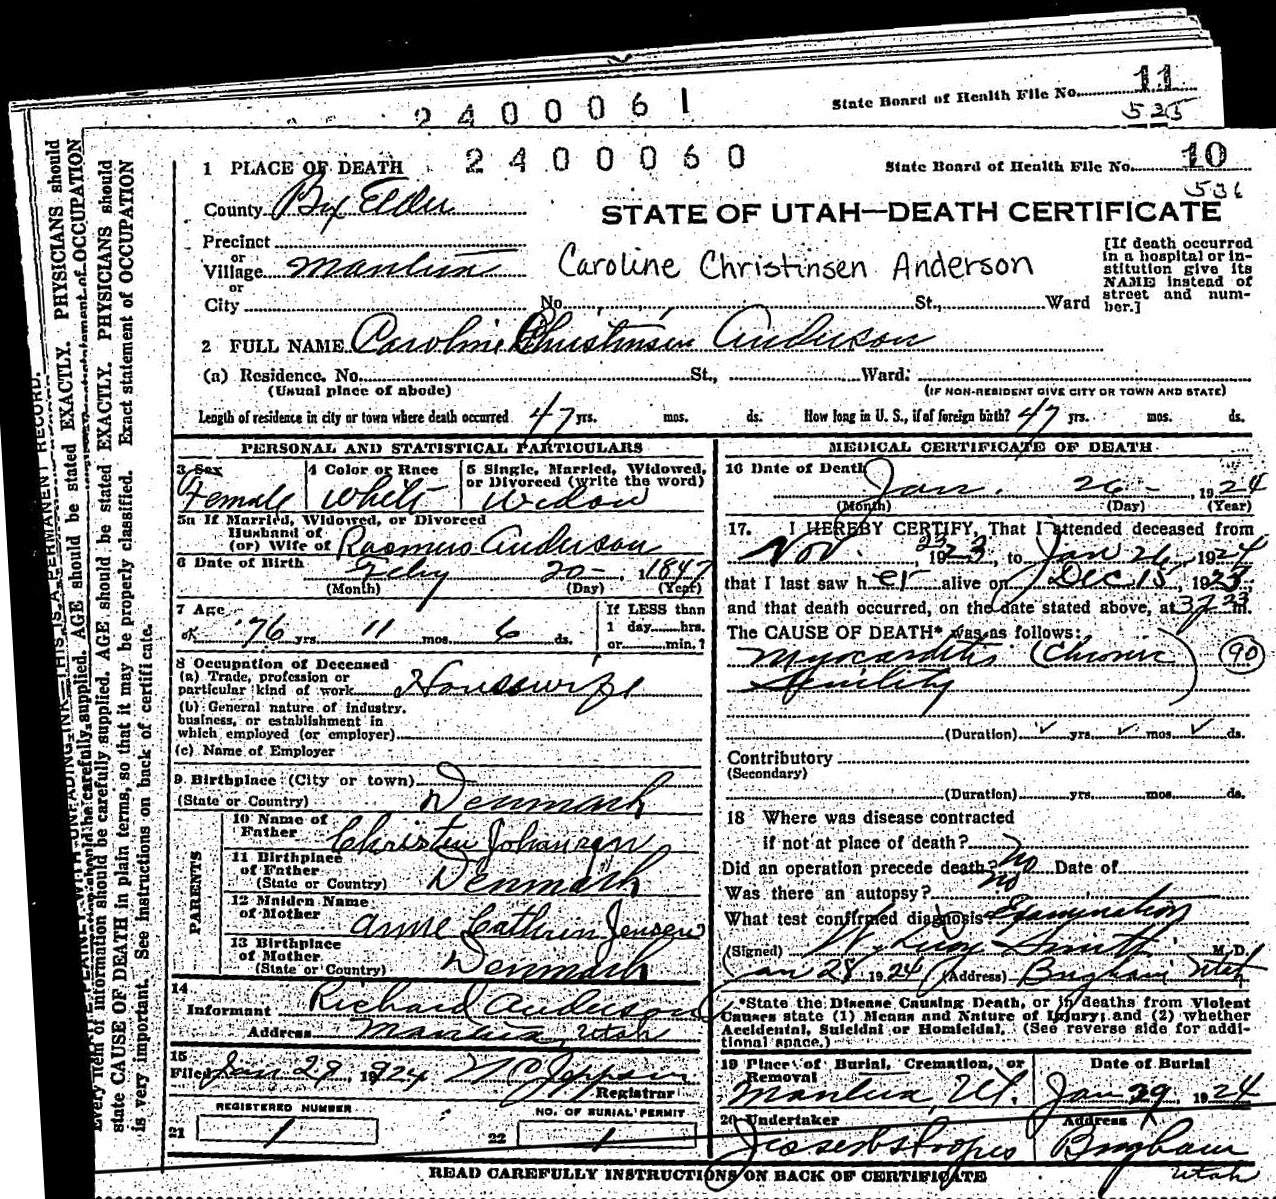 2400061
State Board of Health File No. 11
525
1 PLACE OF DEATH 2400060 State Board of Health File No. 10
536
County Box Elder
STATE OF UTAH—DEATH CERTIFICATE
Precinct
or
Village Mantua
Caroline Christinsen Anderson
[If death occurred in a hospital or institution give its NAME instead of street and number.]
or
City No. St., Ward
2 FULL NAME Caroline Christinsen Anderson
(a) Residence. No. St., Ward.
(Usual place of abode) (IF NON-RESIDENT GIVE CITY OR TOWN AND STATE)
Length of residence in city or town where death occurred 47 yrs. mos. ds. How long in U. S., if of foreign birth? 47 yrs. mos. ds.
PERSONAL AND STATISTICAL PARTICULARS
3 Sex
Female
4 Color or Race
White
5 Single, Married, Widowed, or Divorced (write the word)
Widow
5a If Married, Widowed, or Divorced
Husband of
(or) Wife of Rasmus Anderson
6 Date of Birth Feby 20- 1847
(Month) (Day) (Year)
7 Age
ok 76 yrs. 11 mos. 6 ds.
If LESS than
1 day hrs.
or min.?
8 Occupation of Deceased
(a) Trade, profession or
particular kind of work Housewife
(b) General nature of industry,
business, or establishment in
which employed (or employer)
(c) Name of Employer
9 Birthplace (City or town)
(State or Country) Denmark
PARENTS
10 Name of
Father Christen Johansen
11 Birthplace
of Father
(State or Country) Denmark
12 Maiden Name
of Mother Anne Cathrin Jensen
13 Birthplace
of Mother
(State or Country) Denmark
14
Informant Richard Anderson
Address Mantua, Utah
15
Filed Jan 29, 1924 Jeppsen
Registrar
REGISTERED NUMBER
21 1
NO. OF BURIAL PERMIT
22 1
MEDICAL CERTIFICATE OF DEATH
16 Date of Death
Jan. 26-, 1924
(Month) (Day) (Year)
17. I HEREBY CERTIFY, That I attended deceased from
Nov. 23 1923, to Jan 26- 1924
that I last saw her alive on Dec 15, 1923
and that death occurred, on the date stated above, at m.
The CAUSE OF DEATH* was as follows:
Myocarditis (Chronic) 90
Senility
(Duration) ✓ yrs. ✓ mos. ✓ ds.
Contributory
(Secondary)
(Duration) yrs. mos. ds.
18 Where was disease contracted
if not at place of death?
Did an operation precede death? no Date of
Was there an autopsy? no
What test confirmed diagnosis Examination
(Signed) Smith M. D.
Jan 28, 1924 (Address) Brigham Utah
*State the Disease Causing Death, or in deaths from Violent
Causes state (1) Means and Nature of Injury; and (2) whether
Accidental, Suicidal or Homicidal. (See reverse side for addi-
tional space.)
19 Place of Burial, Cremation, or
Removal
Mantua, Ut.
Date of Burial
Jan 29, 1924
20 Undertaker
Address
Brigham
Utah
READ CAREFULLY INSTRUCTIONS ON BACK OF CERTIFICATE
Every item of information should be carefully supplied. AGE should be stated EXACTLY. PHYSICIANS should
state CAUSE OF DEATH in plain terms, so that it may be properly classified. Exact statement of OCCUPATION
is very important. See instructions on back of certificate.